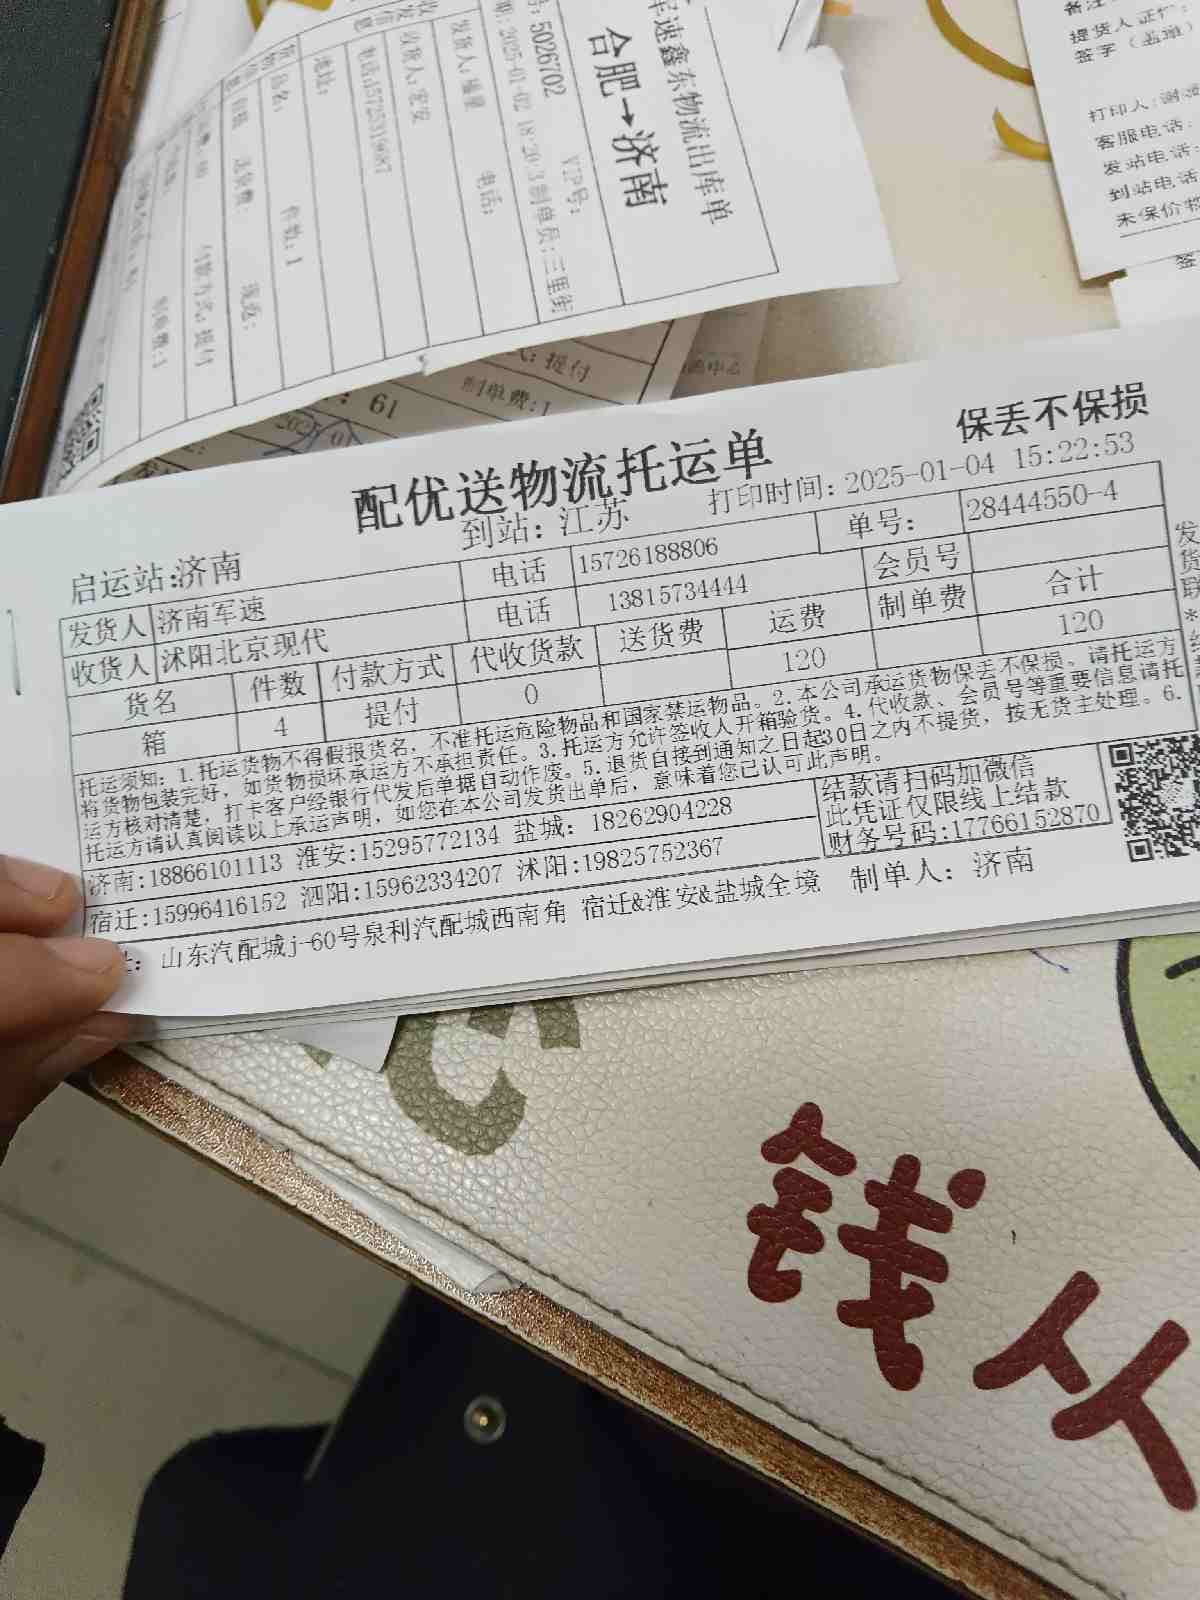 军速鑫东物流出库单
合肥→济南
号: 5026702 VIP号:
期: 2025-01-02 18:20:3 制单员: 三里街
发货人: 电话:
收货人: 宏安
电话:15725319087
地址:
品名: 件数: 1
送货费: 现返:
付款方式: 提付
制单费: 1
备注
提货人 证件:
签字 (盖章)
打印人:谢
客服电话:
发站电话:
到站电话
未保价物
签
式: 提付
: 61 制单费: 1
配优送物流托运单
保丢不保损
启运站:济南 到站: 江苏 打印时间: 2025-01-04 15:22:53
发货人 济南军速 电话 15726188806 单号: 28444550-4
收货人 沭阳北京现代 电话 13815734444 会员号
货名 件数 付款方式 代收货款 送货费 运费 制单费 合计
箱 4 提付 0 120 120
托运须知: 1.托运货物不得假报货名, 不准托运危险物品和国家禁运物品。2.本公司承运货物保丢不保损。请托运方
将货物包装完好, 如货物损坏承运方不承担责任。3.托运方允许签收人开箱验货。4.代收款、会员号等重要信息请托
运方核对清楚, 打卡客户经银行代发后单据自动作废。5.退货自接到通知之日起30日之内不提货, 按无货主处理。6.
托运方请认真阅读以上承运声明, 如您在本公司发货出单后, 意味着您已认可此声明。
济南:18866101113 淮安:15295772134 盐城: 18262904228
宿迁:15996416152 泗阳:15962334207 沭阳:19825752367
结款请扫码加微信
此凭证仅限线上结款
财务号码:17766152870
址: 山东汽配城j-60号泉利汽配城西南角 宿迁&淮安&盐城全境 制单人: 济南
发货联
钱